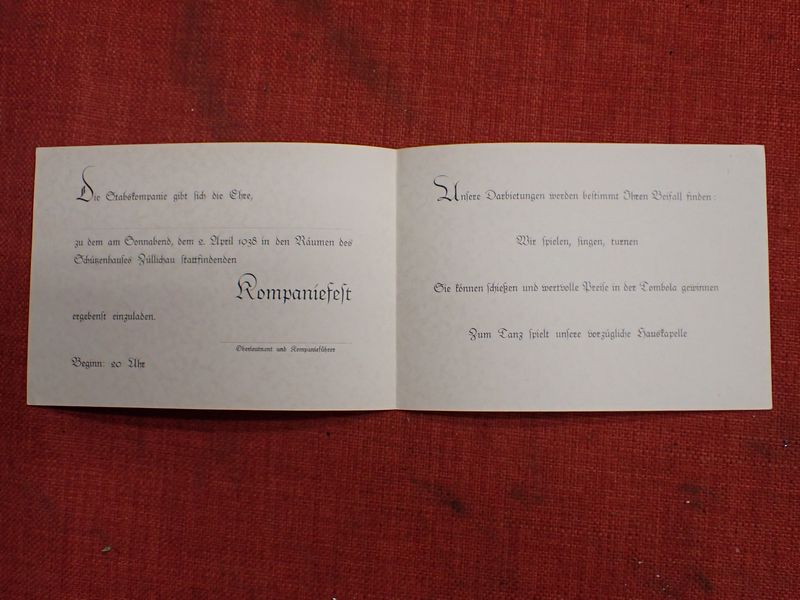 Die Stabskompanie gibt sich die Ehre,
zu dem am Sonnabend, dem 2. April 1938 in den Räumen des
Schützenhauses Züllichau stattfindenden
Kompaniefest
ergebenst einzuladen.
Oberleutnant und Kompanieführer
Beginn: 20 Uhr
Unsere Darbietungen werden bestimmt Ihren Beifall finden:
Wir spielen, singen, turnen
Sie können schießen und wertvolle Preise in der Tombola gewinnen
Zum Tanz spielt unsere vorzügliche Hauskapelle